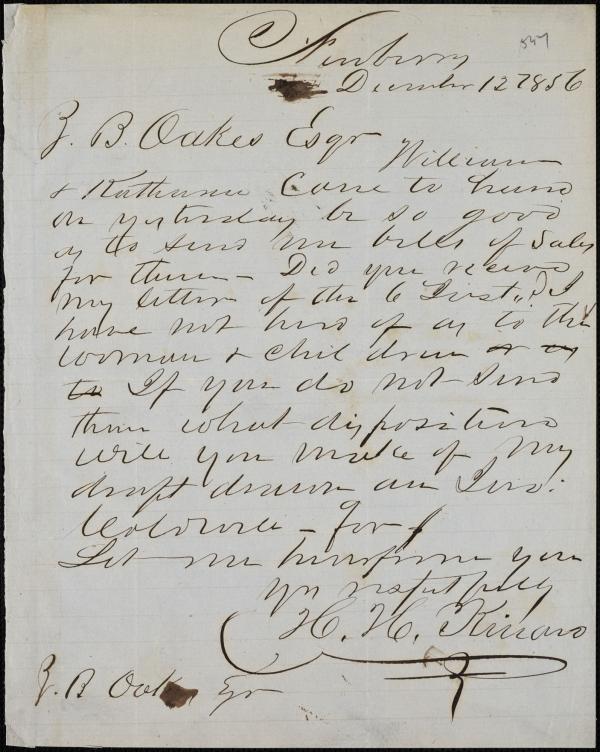 557
Newberry
December 12 1856
Z. B. Oakes Esqr
William
& Katharine Came to hand
on yesterday be so good
as to send me bills of Sales
for them - Did you receive
my letter of the 6 Inst,? I
have not herd of as to the
woman & children or as
to If you do not send
them what disposition
will you make of my
draft drawn on
Coldwell - for
Let me hear from you
yrs respectfully
H. H. Kinard
Z. B Oakes Eqr